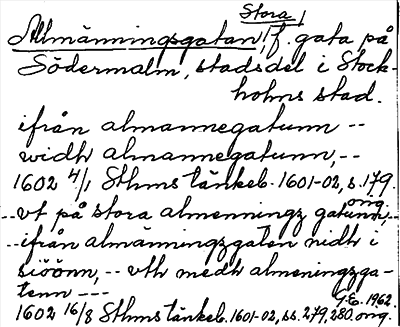 Stora
Allmänningsgatan, f. gata på
Södermalm, stadsdel i Stock-
holms stad.
ifrån almannegatunn --
widh almannegatunn, --
1602 4/1 Sthms tänkeb. 1601-02, s. 179.
orig.
-- vt på stora almenningz gatunn, --
-- ifrån almänningzgaten nidh i
siöönn, -- vth medh almeningzga-
tenn ---
1602 16/8 Sthms tänkeb. 1601-02, ss. 279, 280. orig.
1962.